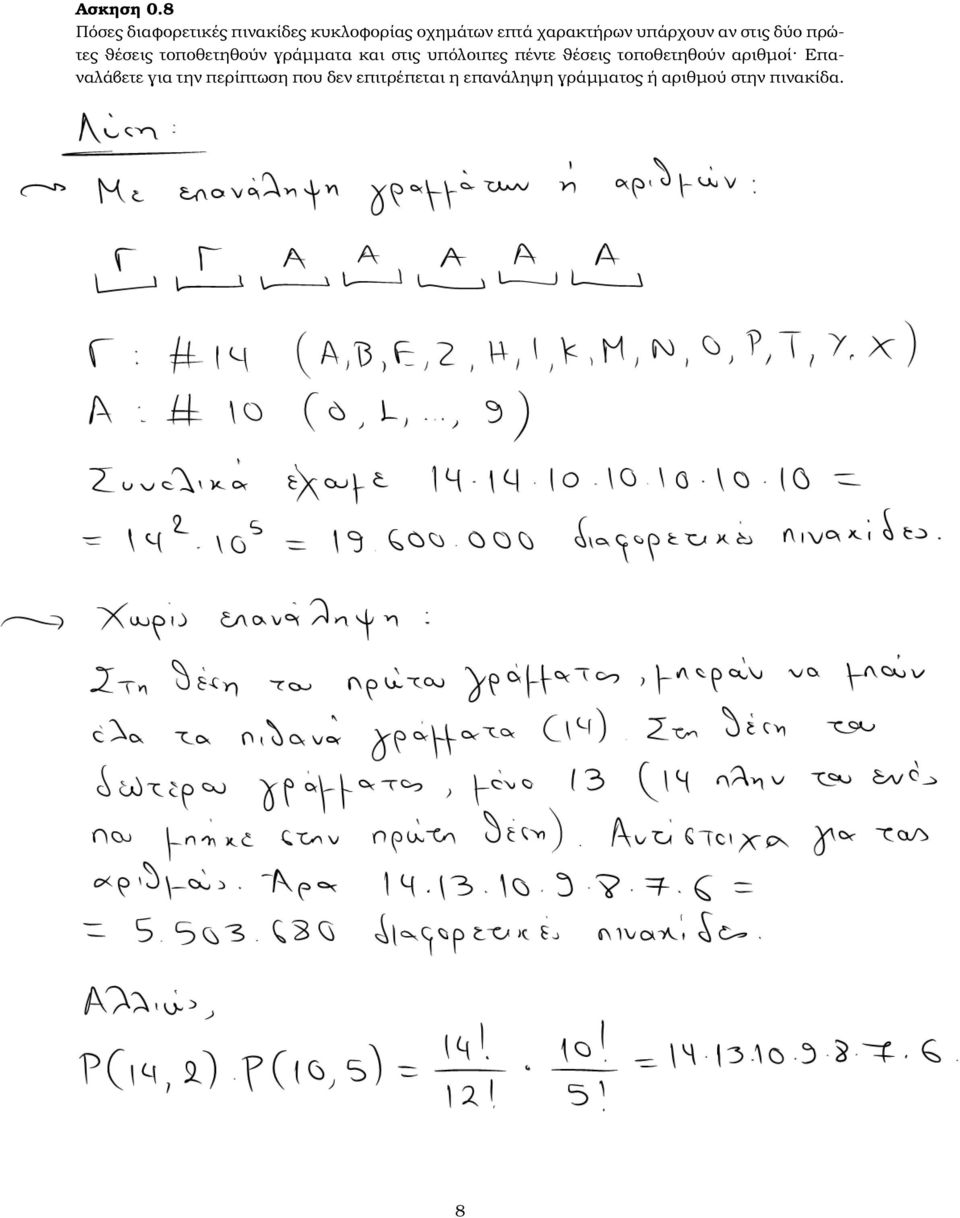 Ασκηση 0.8
Πόσες διαφορετικές πινακίδες κυκλοφορίας οχημάτων επτά χαρακτήρων υπάρχουν αν στις δύο πρώ-
τες θέσεις τοποθετηθούν γράμματα και στις υπόλοιπες πέντε θέσεις τοποθετηθούν αριθμοί· Επα-
ναλάβετε για την περίπτωση που δεν επιτρέπεται η επανάληψη γράμματος ή αριθμού στην πινακίδα.
Λύση:
→ Με επανάληψη γραμμάτων ή αριθμών:
Γ Γ Α Α Α Α Α
Γ: #14 (Α,Β,Ε,Ζ,Η,Ι,Κ,Μ,Ν,Ο,Ρ,Τ,Υ,Χ)
Α: #10 (0,1,...,9)
Συνολικά έχουμε 14·14·10·10·10·10·10 =
= 14²·10⁵ = 19.600.000 διαφορετικές πινακίδες.
→ Χωρίς επανάληψη:
Στη θέση του πρώτου γράμματος, μπορούν να μπούν
όλα τα πιθανά γράμματα (14). Στη θέση του
δεύτερου γράμματος, μόνο 13 (14 πλην του ενός
που μπήκε στην πρώτη θέση). Αντίστοιχα για τους
αριθμούς. Άρα 14·13·10·9·8·7·6 =
= 5.503.680 διαφορετικές πινακίδες.
Αλλιώς,
P(14,2)·P(10,5) = 14!/12! · 10!/5! = 14·13·10·9·8·7·6.
8